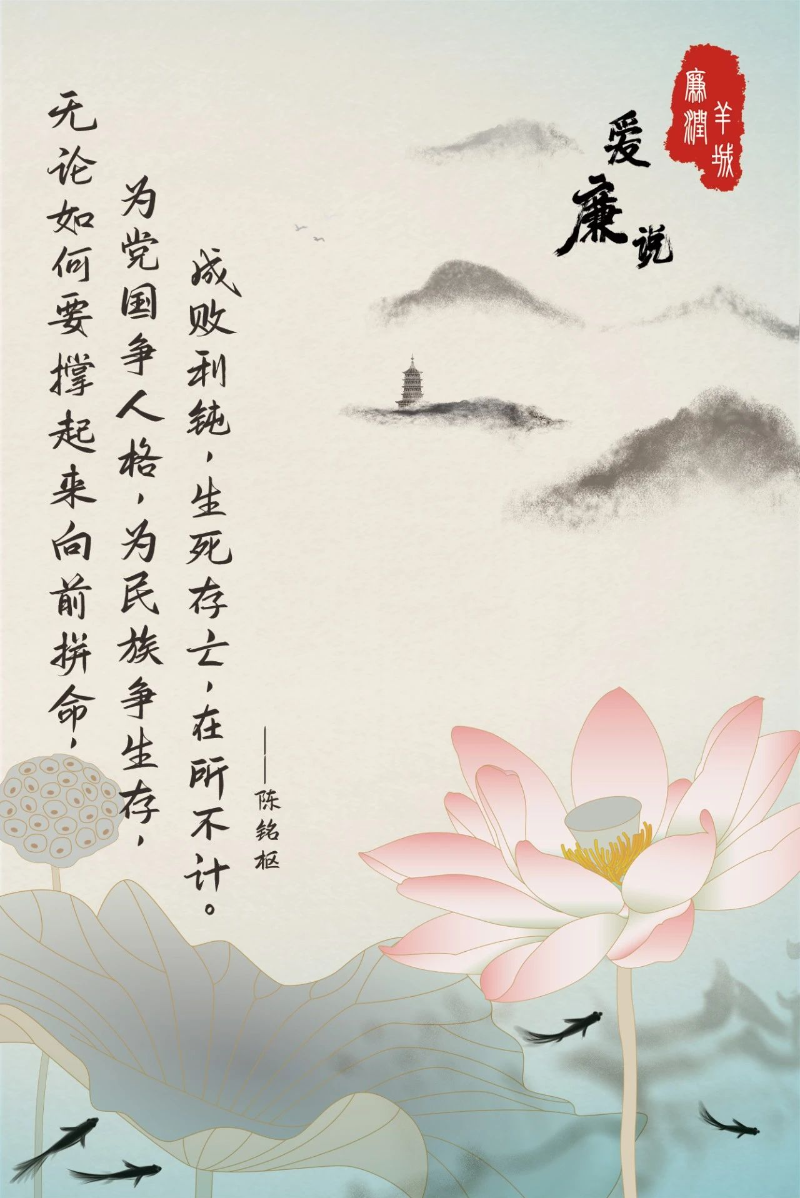 廉潤
羊城
爱廉说
无论如何要撑起来向前拼命，
为党国争人格，为民族争生存，
成败利钝，生死存亡，在所不计。
——陈铭枢